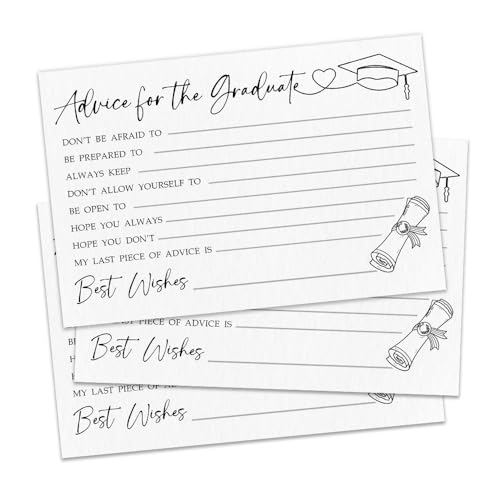 Advice for the Graduate
DON'T BE AFRAID TO
BE PREPARED TO
ALWAYS KEEP
DON'T ALLOW YOURSELF TO
BE OPEN TO
HOPE YOU ALWAYS
HOPE YOU DON'T
MY LAST PIECE OF ADVICE IS
Best Wishes
PIECE OF ADVICE IS
Best Wishes
MY LAST PIECE OF
Best Wishes